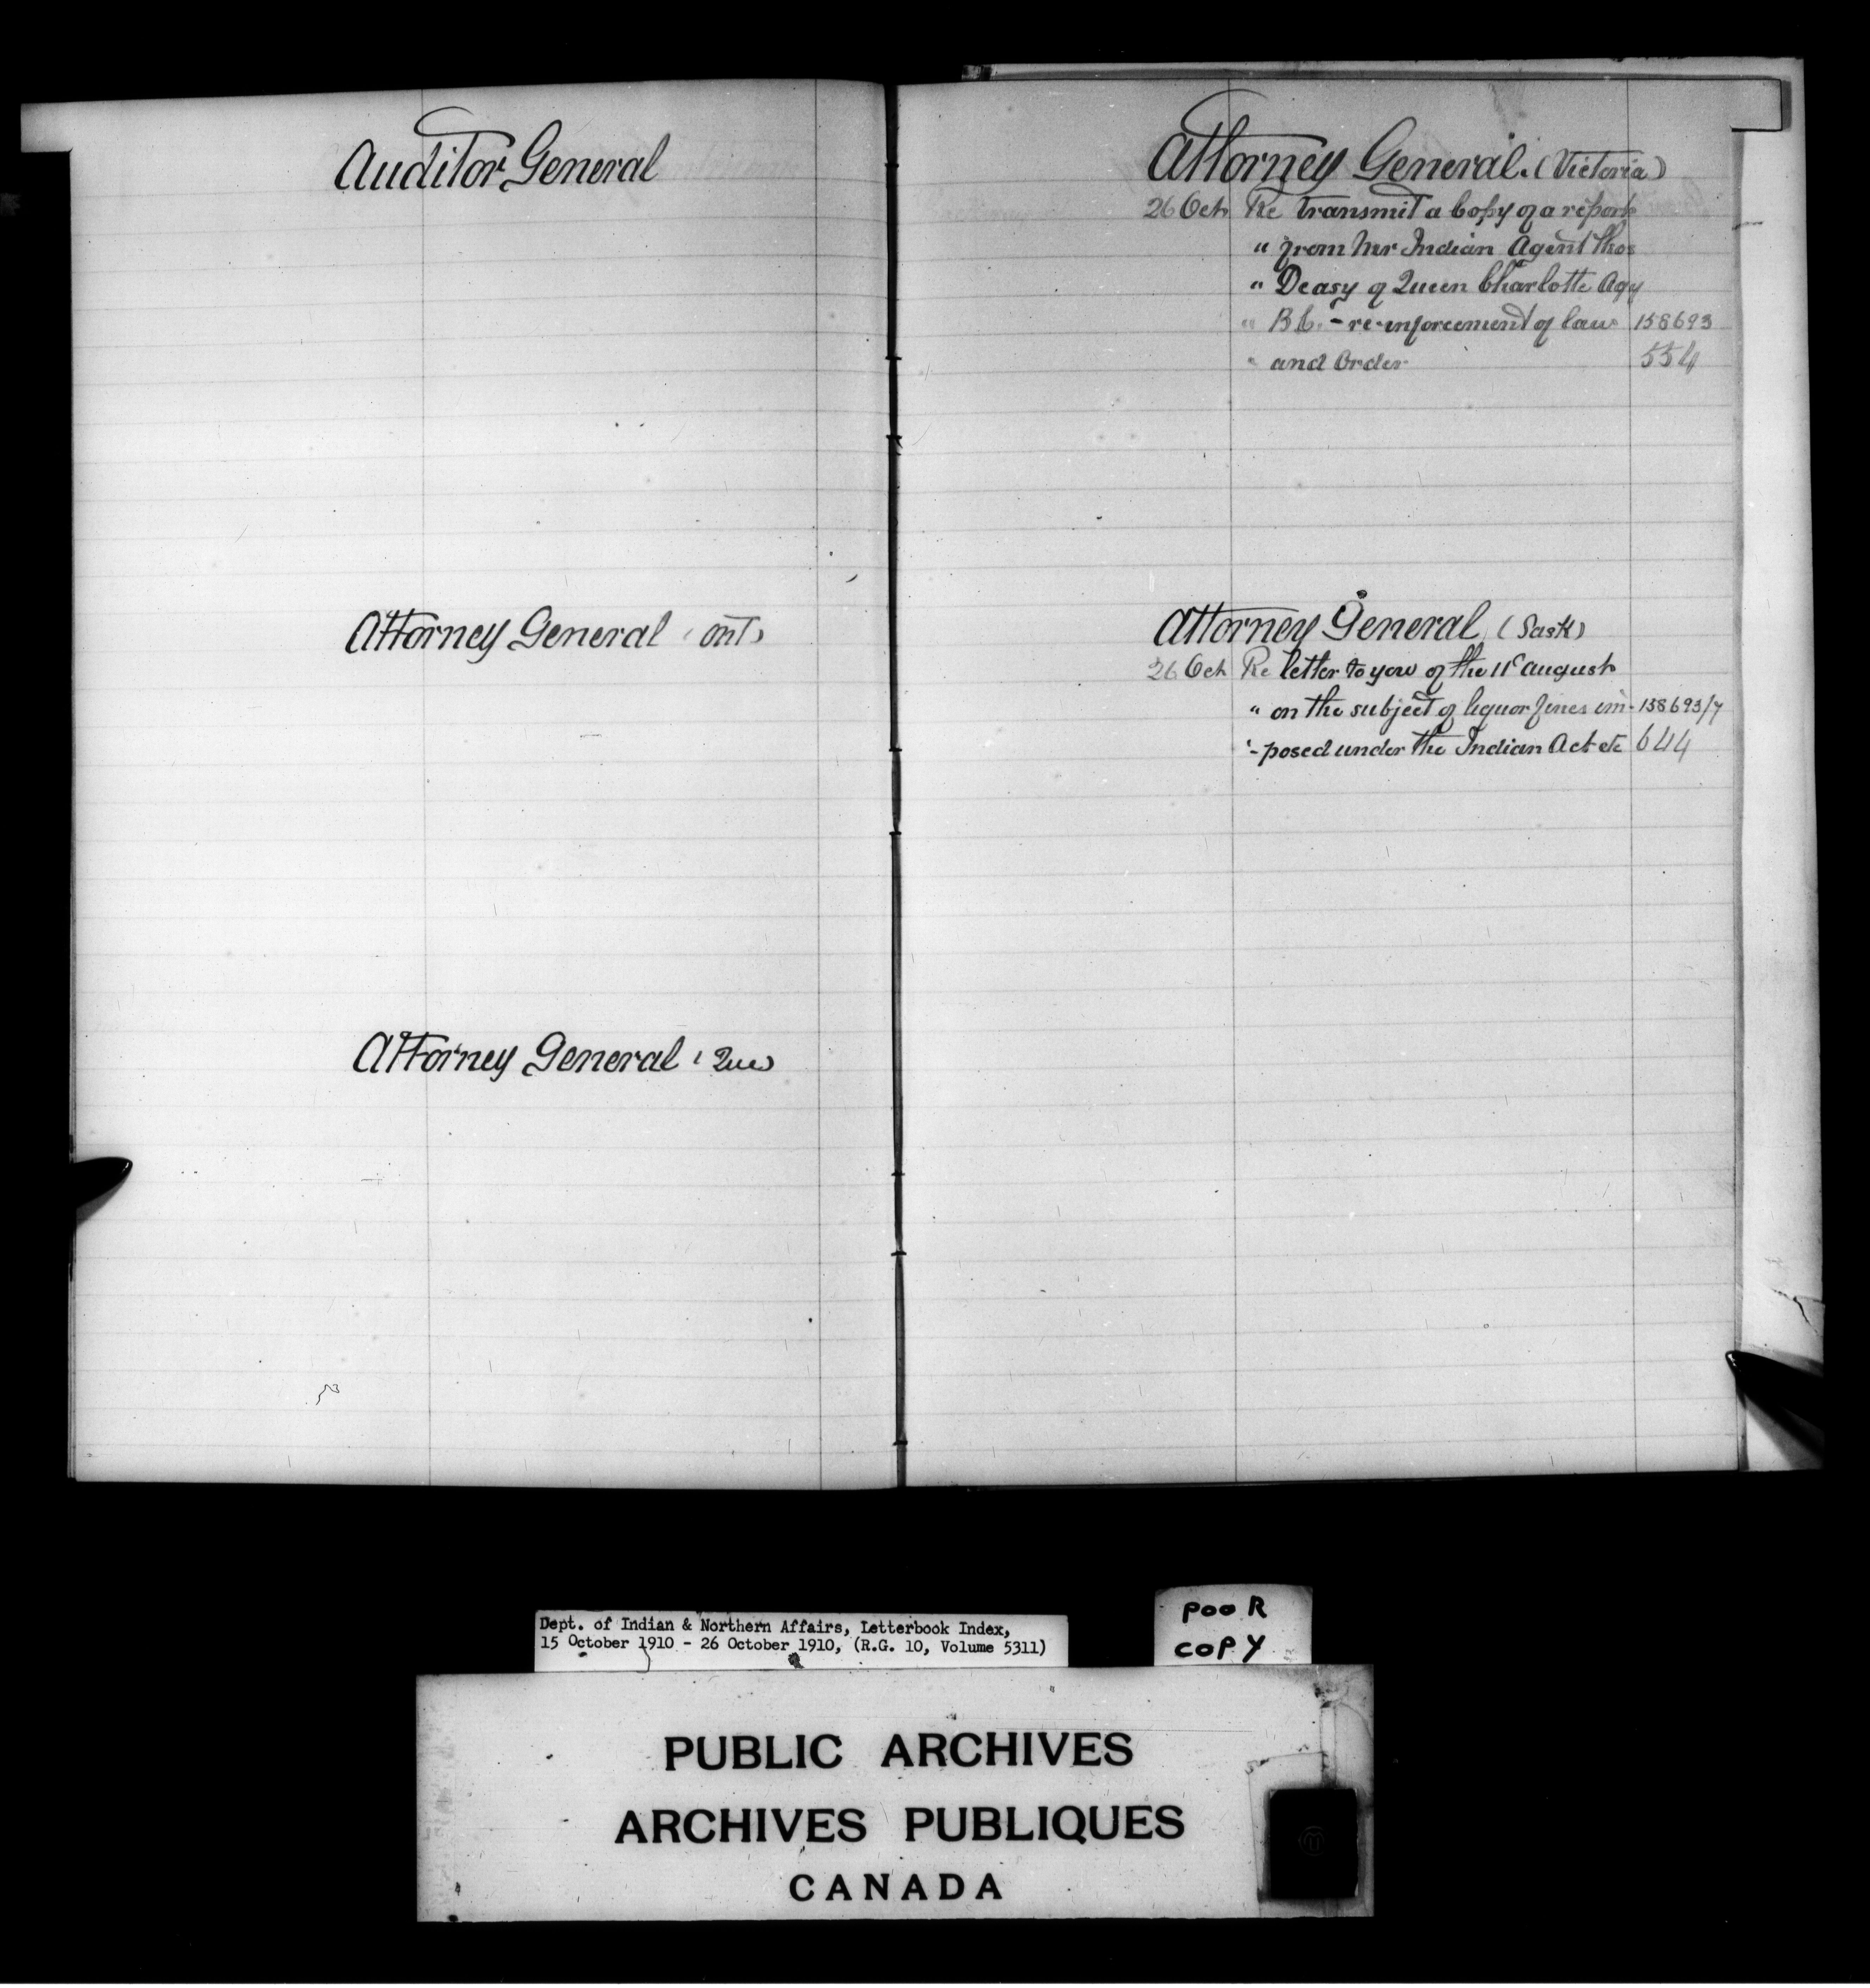 Auditor General
Attorney General (Ont)
Attorney General (Que)
Attorney General. (Victoria)
26 Oct Re transmit a Copy of a report
" from Mr Indian Agent Thos
" Deasy of Queen Charlotte Agy
" B.C. - re-inforcement of law 158693
" and Order 554
Attorney General (Sask)
26 Oct Re letter to you of the 11th August
" on the subject of liquor fines im- 158693/7
"-posed under the Indian Act etc 644
Dept. of Indian & Northern Affairs, Letterbook Index,
15 October 1910 - 26 October 1910, (R.G. 10, Volume 5311)
POOR
COPY
PUBLIC ARCHIVES
ARCHIVES PUBLIQUES
CANADA